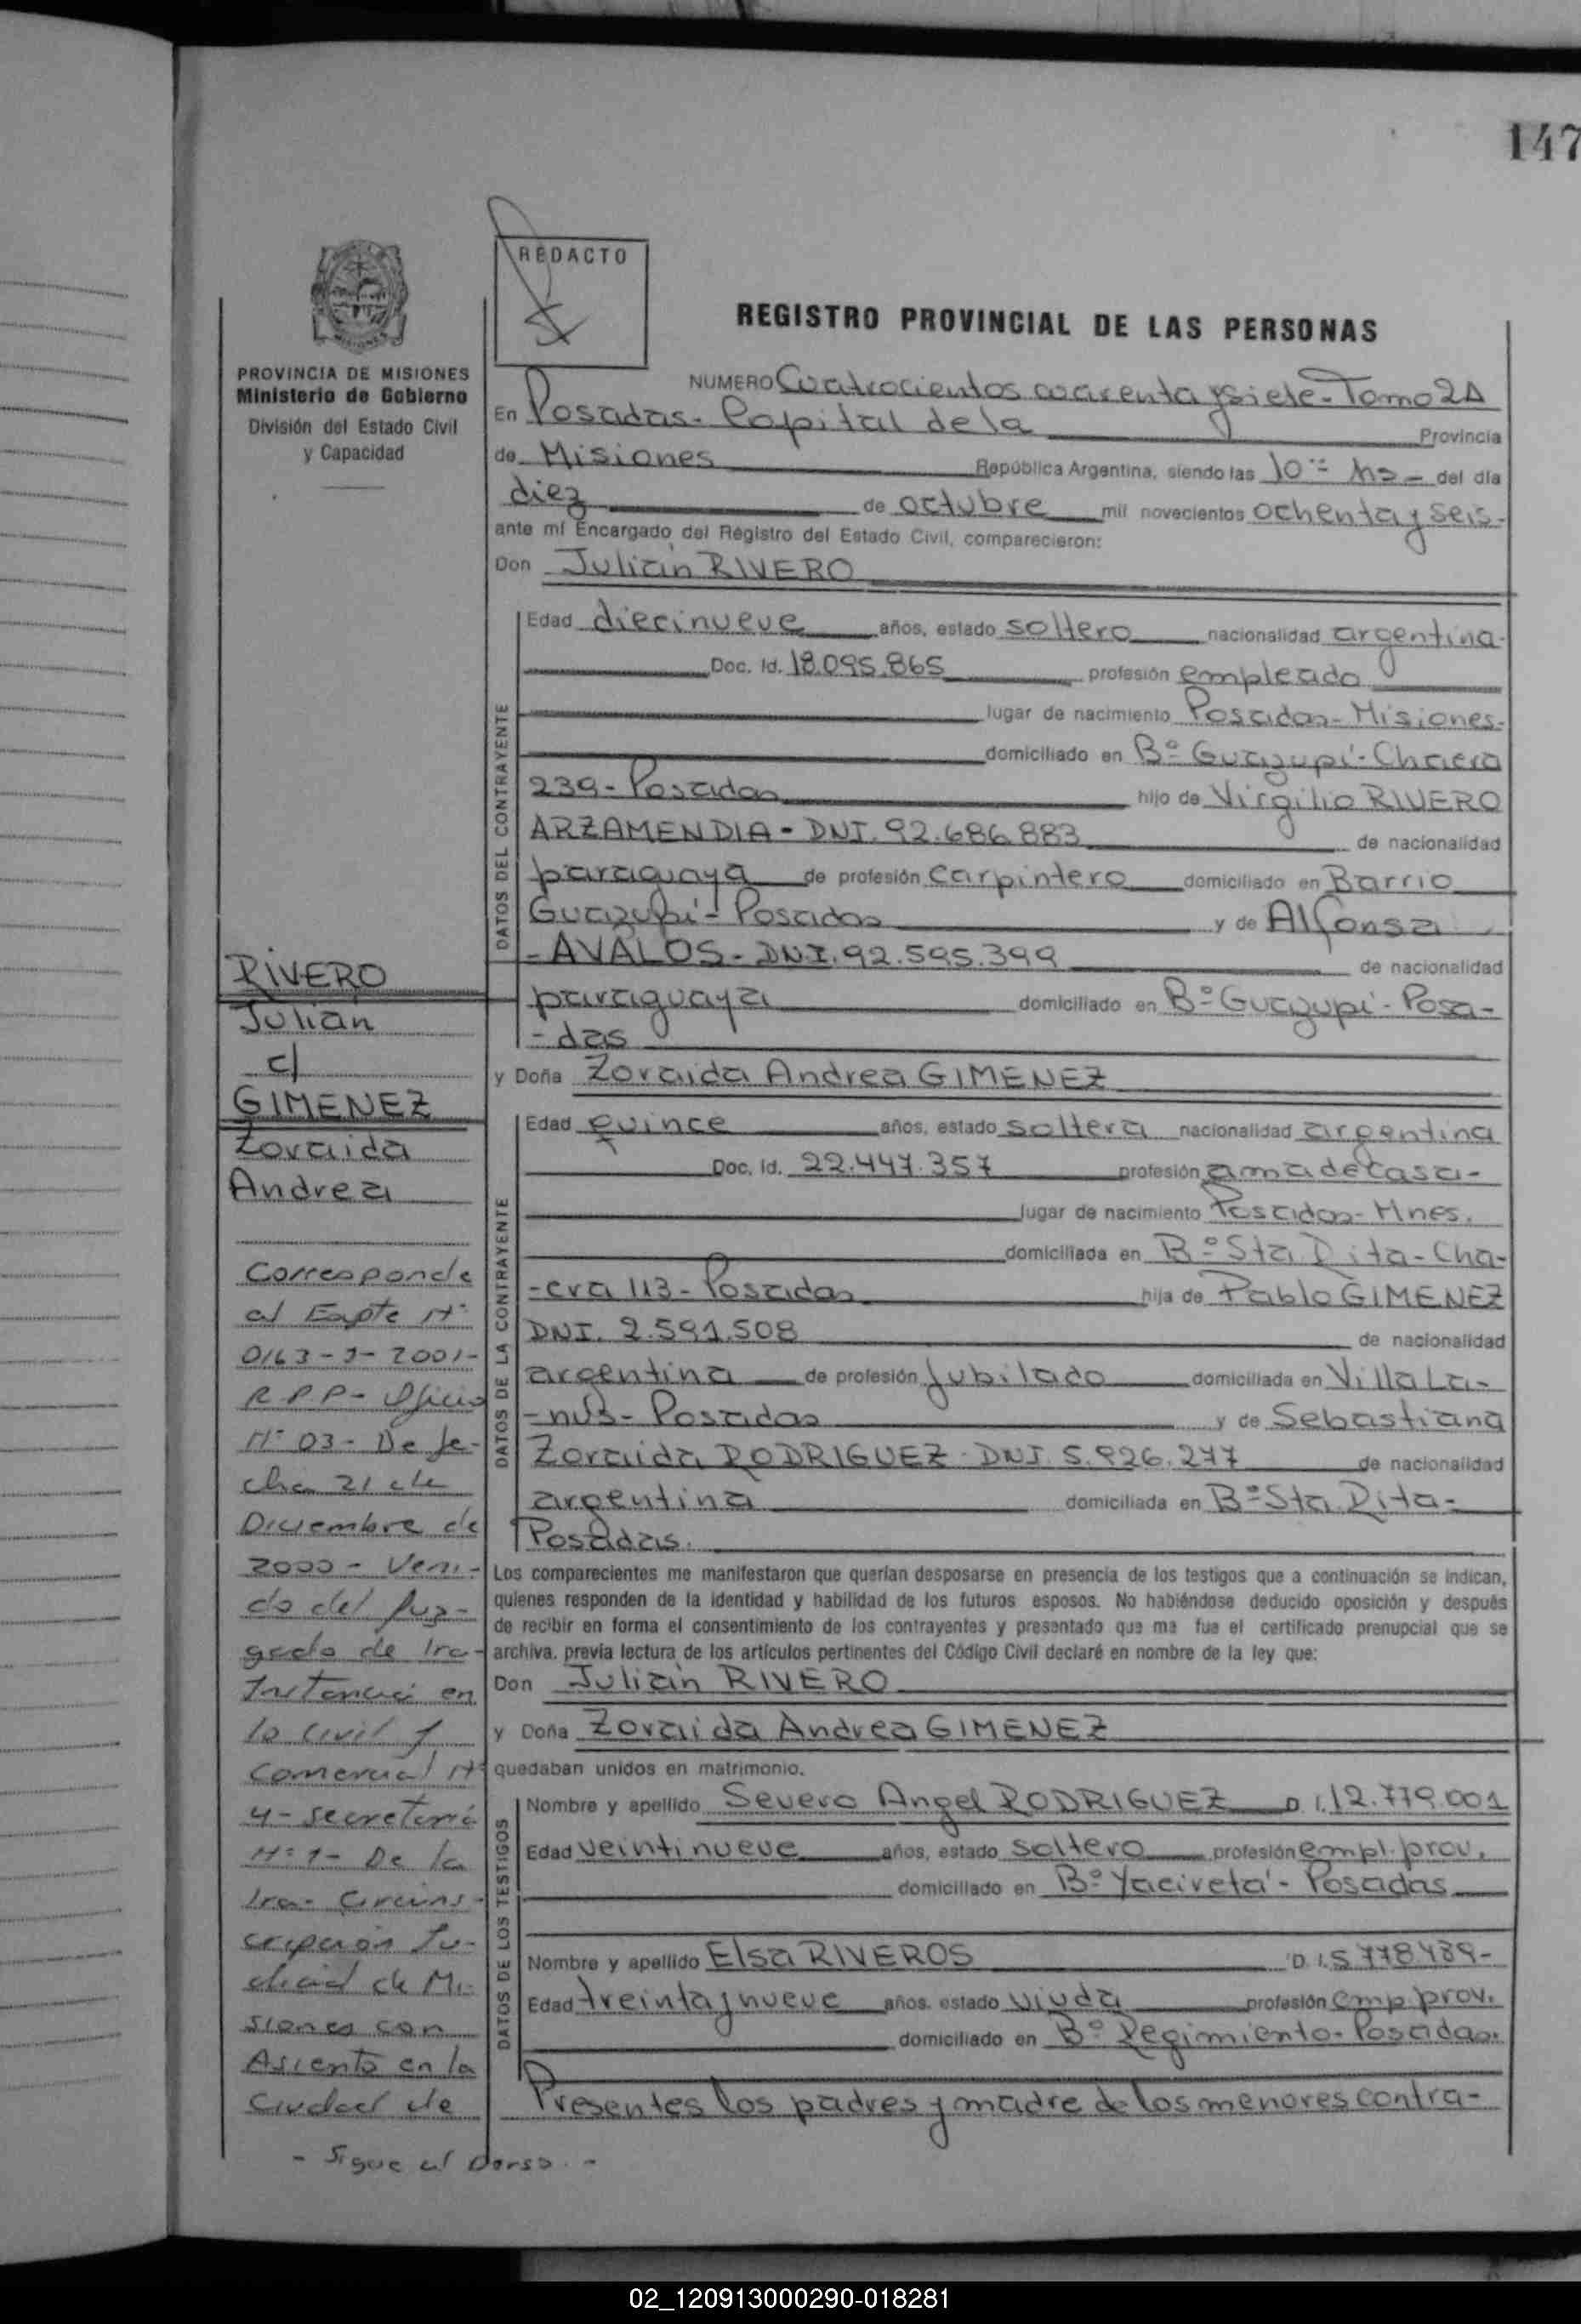 147
REDACTO
PROVINCIA DE MISIONES
Ministerio de Gobierno
División del Estado Civil
y Capacidad
REGISTRO PROVINCIAL DE LAS PERSONAS
NUMERO Cuatrocientos cuarenta y siete - Tomo 2A
En Posadas - Capital de la Provincia
de Misiones República Argentina, siendo las 10 hs - del día
diez de octubre mil novecientos ochenta y seis-
ante mí Encargado del Registro del Estado Civil, comparecieron:
Don Julián RIVERO
DATOS DEL CONTRAYENTE
Edad diecinueve años, estado soltero nacionalidad argentina-
Doc. Id. 18.095.865 profesión empleado
lugar de nacimiento Posadas - Misiones-
domiciliado en Bº Guazupí - Chacra
239 - Posadas hijo de Virgilio RIVERO
ARZAMENDIA - DNI. 92.686.883 de nacionalidad
paraguaya de profesión carpintero domiciliado en Barrio
Guazupí - Posadas y de Alfonsa
- AVALOS - DNI. 92.595.399 de nacionalidad
paraguaya domiciliado en Bº Guazupí - Posa-
- das
y Doña Zoraida Andrea GIMENEZ
DATOS DE LA CONTRAYENTE
Edad quince años, estado soltera nacionalidad argentina
Doc. Id. 22.447.357 profesión ama de casa -
lugar de nacimiento Posadas - Mnes.
domiciliada en Bº Sta Rita - Cha-
- cra 113 - Posadas hija de Pablo GIMENEZ
DNI. 2.591.508 de nacionalidad
argentina de profesión Jubilado domiciliada en Villa La-
- nús - Posadas y de Sebastiana
Zoraida RODRIGUEZ - DNI. 5.926.277 de nacionalidad
argentina domiciliada en Bº Sta. Rita -
Posadas.
Los comparecientes me manifestaron que querían desposarse en presencia de los testigos que a continuación se indican,
quienes responden de la identidad y habilidad de los futuros esposos. No habiéndose deducido oposición y después
de recibir en forma el consentimiento de los contrayentes y presentado que me fue el certificado prenupcial que se
archiva, previa lectura de los artículos pertinentes del Código Civil declaré en nombre de la ley que:
Don Julián RIVERO
y Doña Zoraida Andrea GIMENEZ
quedaban unidos en matrimonio.
DATOS DE LOS TESTIGOS
Nombre y apellido Severo Angel RODRIGUEZ D.I. 12.779.001
Edad veintinueve años, estado soltero profesión empl. prov.
domiciliado en Bº Yaciretá - Posadas
Nombre y apellido Elsa RIVEROS D.I. 5.778.489-
Edad treinta y nueve años, estado viuda profesión emp. prov.
domiciliado en Bº Regimiento - Posadas.
Presentes los padres y madre de los menores contra-
RIVERO
Julián
c/
GIMENEZ
Zoraida
Andrea
Corresponde
al Expte Nº
0163-J-2001-
R.P.P - Oficio
Nº 03 - De fe-
cha 21 de
Diciembre de
2000 - Veni-
do del Juz-
gado de 1ra
Instancia en
lo Civil y
Comercial Nº
4 - secretaría
Nº 1 - De la
1ra - Circuns-
cripción Ju-
dicial de Mi-
siones con
Asiento en la
Ciudad de
- Sigue al Dorso. -
02_120913000290-018281